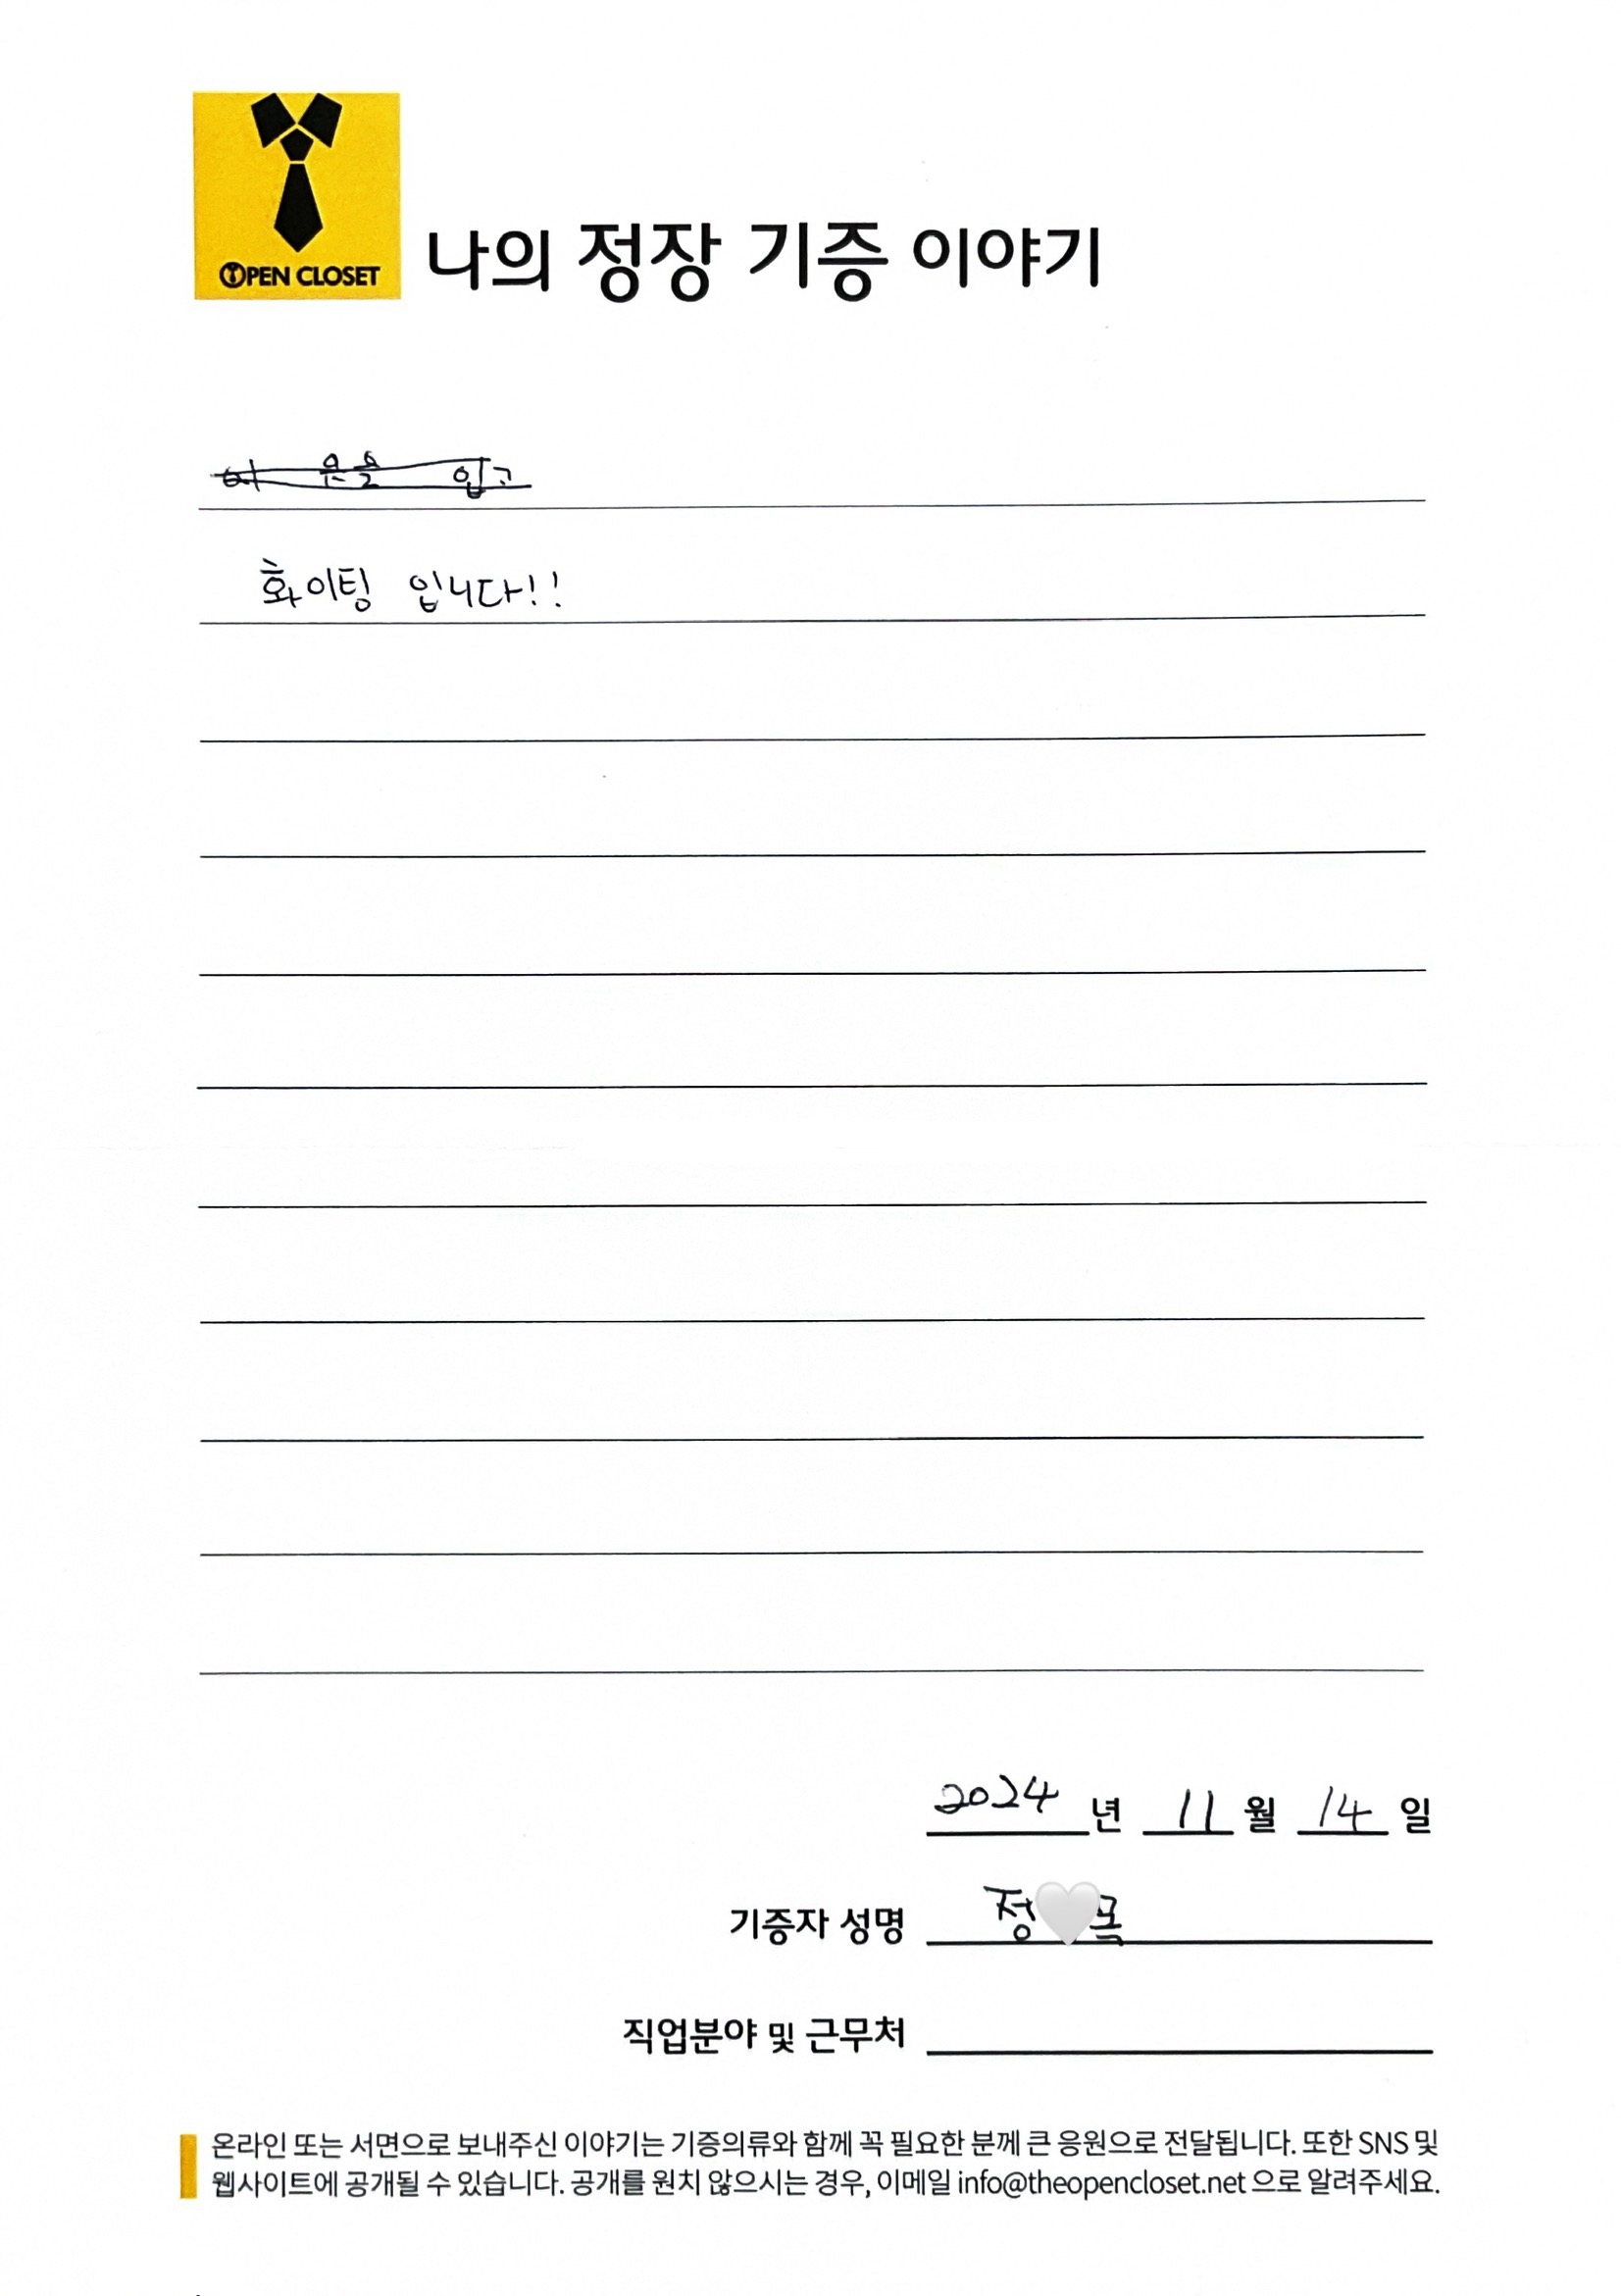 OPEN CLOSET
나의 정장 기증 이야기
이 옷을 입고
화이팅 입니다!!
2024 년 11 월 14 일
기증자 성명 정🤍목
직업분야 및 근무처
온라인 또는 서면으로 보내주신 이야기는 기증의류와 함께 꼭 필요한 분께 큰 응원으로 전달됩니다. 또한 SNS 및
웹사이트에 공개될 수 있습니다. 공개를 원치 않으시는 경우, 이메일 info@theopencloset.net 으로 알려주세요.